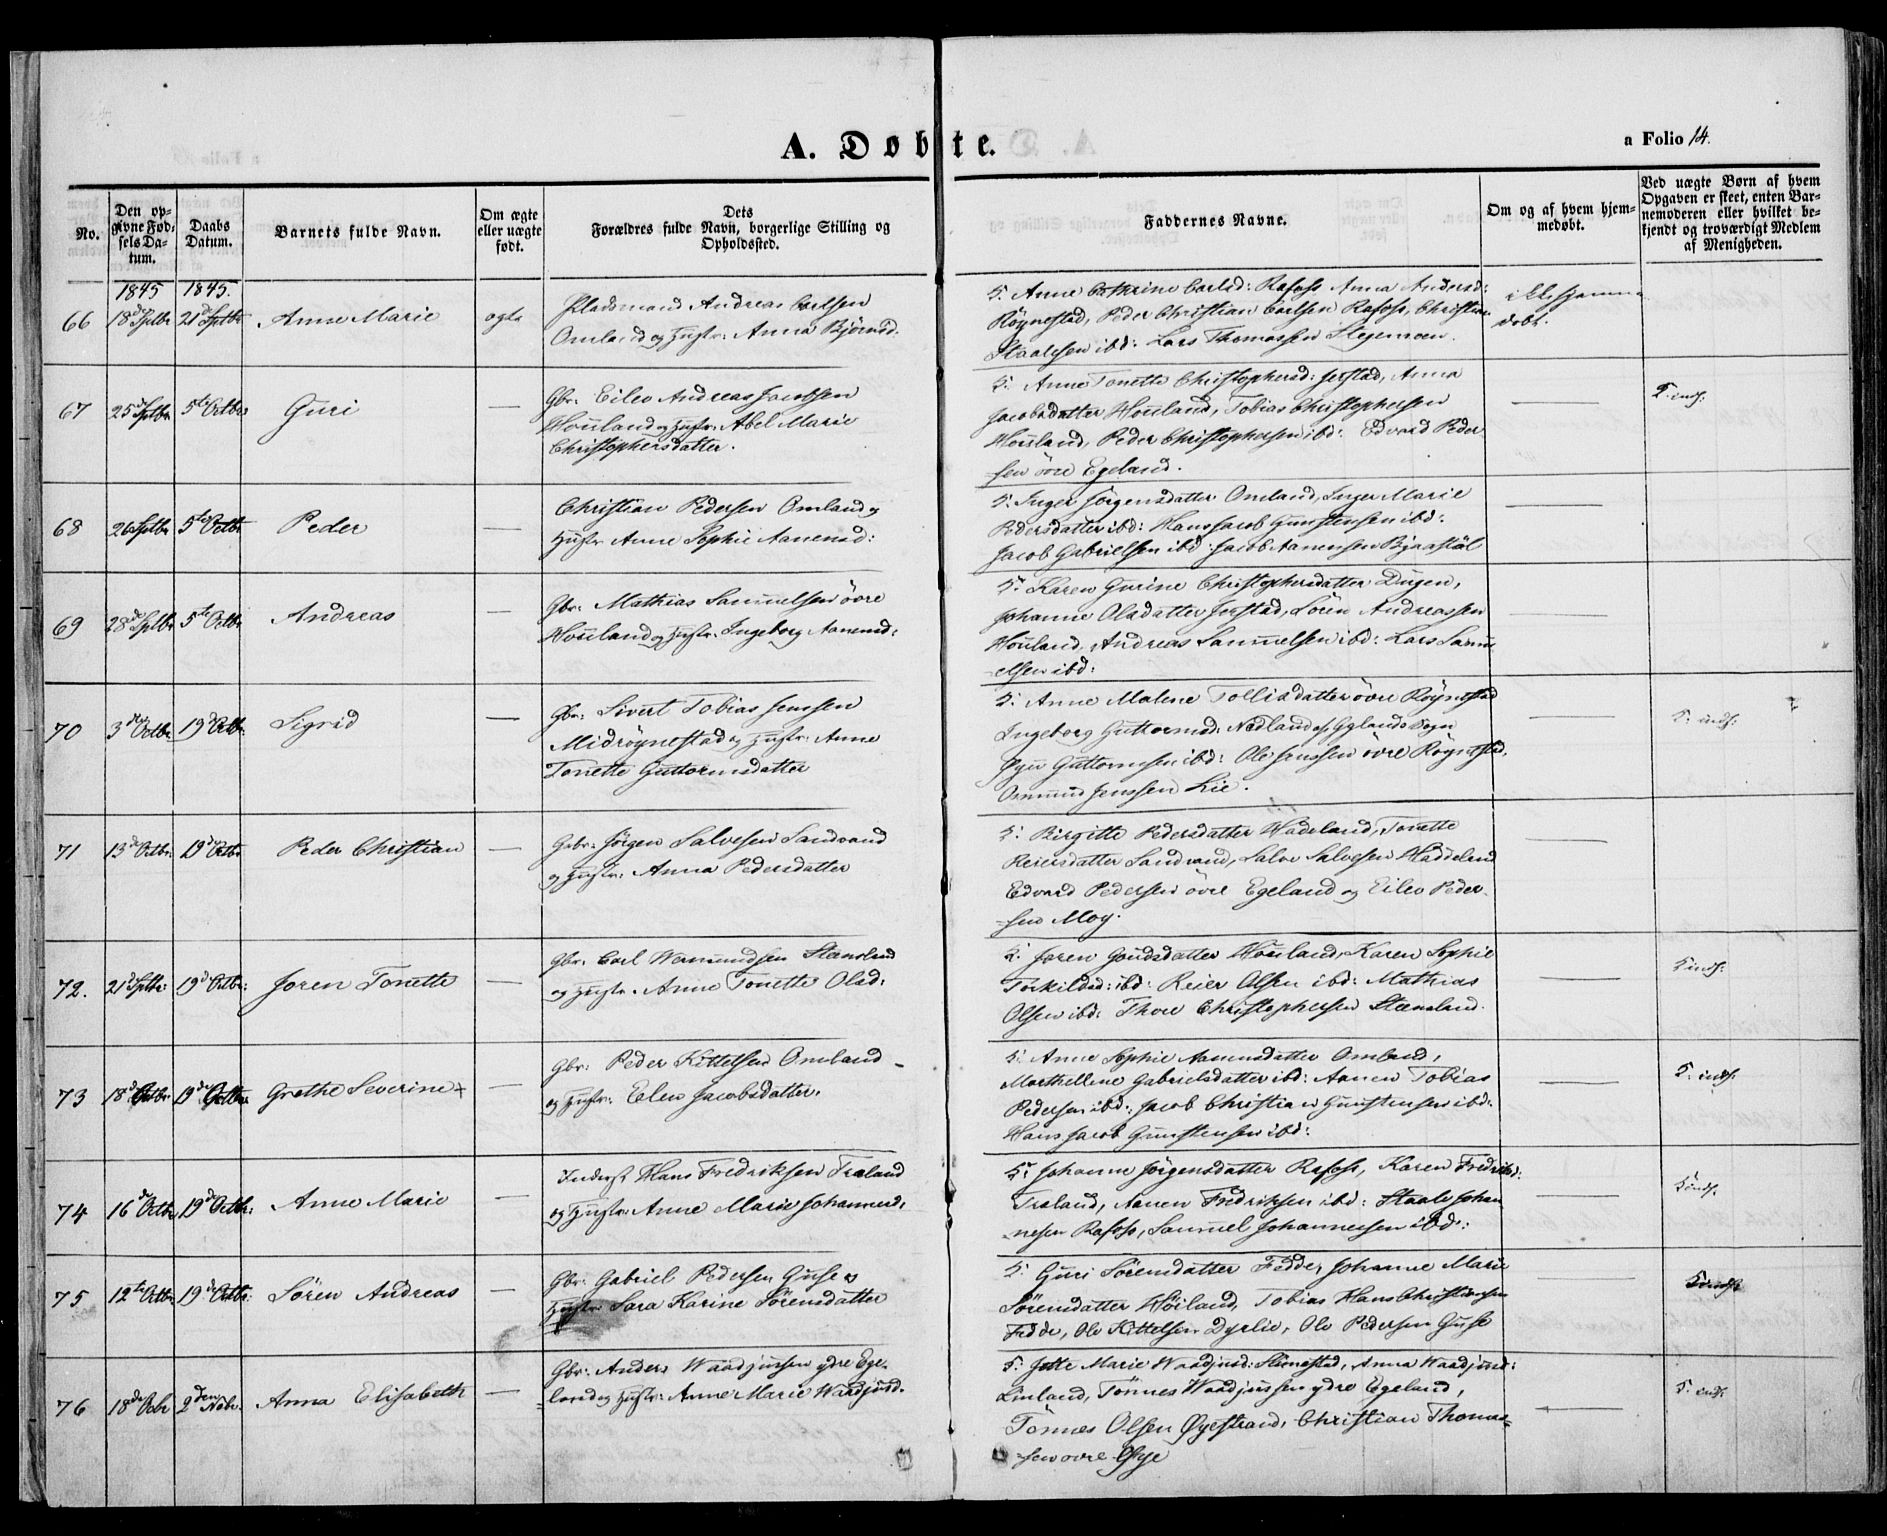 A. Døbte.
a Folio 14.
No.
Den opgivne Fødsels Datum.
Daabs Datum.
Barnets fulde Navn.
Om ægte eller uægte født.
Dets Forældres fulde Navn, borgerlige Stilling og Opholdssted.
Faddernes Navne.
Om og af hvem hjemmedøbt.
Ved uægte Børn af hvem Opgaven er skeet, enten Barnemoderen eller hvilket bekjendt og troværdigt Medlem af Menigheden.
1845 1845.
66 18d Sptbr 21d Sptbr Anne Marie ægte
Pladsmand Andreas Carlsen
Omland og Hustr: Anna Bjørnsd.
F. Anne Cathrine Carlsd: Rafoss Anna Andersd:
Röynestad, Peder Christian Carlsen Rafoss, Christian
Staalesen ibd: Lars Thomassen Stegemoen.
ikke hjemme
døbt.
67 25d Sptbr 5te Octbr Guri —
Gbr: Eilev Andreas Jacobsen
Houland og Hustr: Abel Marie
Christophersdatter.
F. Anne Tonette Christophersd: Jerstad, Anna
Jacobsdatter Houland, Tobias Christophersen
Houland, Peder Christophersen ibd: Edvard Peder
sen övre Egeland.
—
F. inds.
68 26 Sptbr 5te Octbr Peder —
Christian Pedersen Omland og
Hustr Anne Sophie Aanensd:
F. Inger Jörgensdatter Omland, Inger Marie
Pedersdatter ibd: Hans Jacob Gunstensen ibd:
Jacob Gabrielsen ibd: Jacob Aanensen Bjaastöl
—
69 28d Sptbr 5te Octbr Andreas —
Gbr: Mathias Samuelsen övre
Houland og Hustr: Ingeborg Aanensd:
F. Karen Gurine Christophersdatter Dugen,
Johanne Olsdatter Jerstad, Sören Andreassen
Houland, Andreas Samuelsen ibd: Lars Samu
elsen ibd:
—
70 3die Octbr 19d Octbr Sigrid —
Gbr: Sivert Tobias Jenssen
Midröynestad og Hustr: Anne
Tonette Guttormsdatter
F. Anne Malene Tollisdatter övre Röynestad
Ingeborg Guttormsd: Nedland af Gylands Sogn
Guttormsen ibd: Ole Jenssen övre Röynestad,
Osmund Jenssen Lie.
—
F. inds:
71 13d Octbr: 19d Octbr Peder Christian —
Gbr: Jörgen Salvesen Sandvand
og Hustr: Anna Pedersdatter
F. Birgitte Pedersdatter Hadeland, Tonette
Reiersdatter Sandvand, Salve Salvesen Haddeland
Edvard Pedersen övre Egeland og Eilev Peder
sen Moy.
—
72. 21d Sptbr: 19d Octbr: Joren Tonette —
Gbr: Carl Wermundsen Steensland
og Hustr. Anne Tonette Olsd:
F. Joren Houland, Karen Sophie
Torkildsd: ibd: Reier Olsen ibd: Mathias
Olsen ibd: Thore Christophersen Steensland.
—
F inds.
73 18d Octbr 19d Octbr Grethe Severine + —
Gbr: Peder Kittelsen Omland
og Hustr: Elen Jacobsdatter.
F. Anne Sophie Aanensdatter Omland,
Marthellene Gabrielsdatter ibd: Aanen Tobias
Pedersen ibd: Jacob Christian Gunstensen ibd:
Hans Jacob Gunstensen ibd:
—
F. inds.
74 16d Octbr 19d Octbr: Anne Marie —
Inderst Hans Fredriksen Traland
og Hustr: Anne Marie Johannesd.
F. Johanne Jörgensdatter Rafoss, Karen Fredriksd:
Traland, Aanen Fredriksen ibd: Staale Johan
nesen Rafoss, Samuel Johannesen ibd:
—
F inds.
75 12te Octbr 19d Octbr: Sören Andreas —
Gbr: Gabriel Pedersen Guse og
Hustr Sara Karine Sörensdatter
F. Guri Sörensdatter Fedde, Johanne Marie
Sörensdatter Höiland, Tobias Hans Christiansen
Fedde, Ole Kittelsen Dyrlie, Ole Pedersen Guse
—
F inds.
76 18de Octbr 2den Novbr. Anna Elisabeth —
Gbr: Anders Waadjussen ydre Ege-
land og Hustr: Anne Marie Waadjusd.
F. Jette Marie Waadjusd: Stönestad, Anna Waadjusd:
Linland, Tönnes Waadjussen ydre Egeland,
Tönnes Olsen Øyestrand, Christian Thomas=
sen övre Øye
—
F. inds.